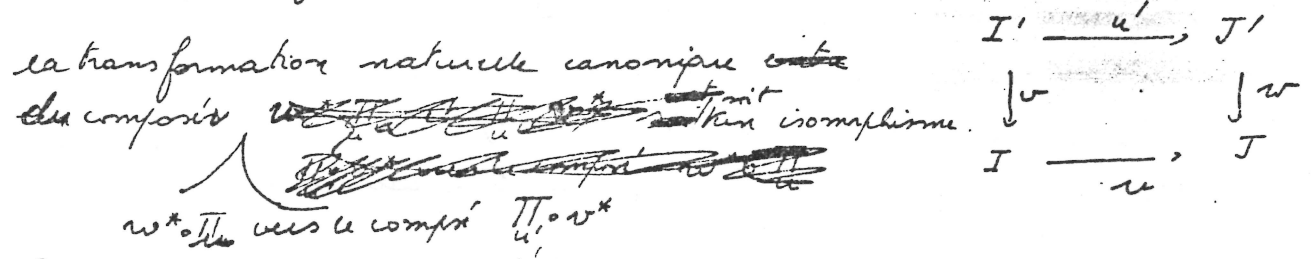 la transformation naturelle canonique
du composé soit un isomorphisme.
w*∘∏_u vers le composé ∏_u' ∘ v*
I' —u'→ J'
↓v ↓w
I —u→ J